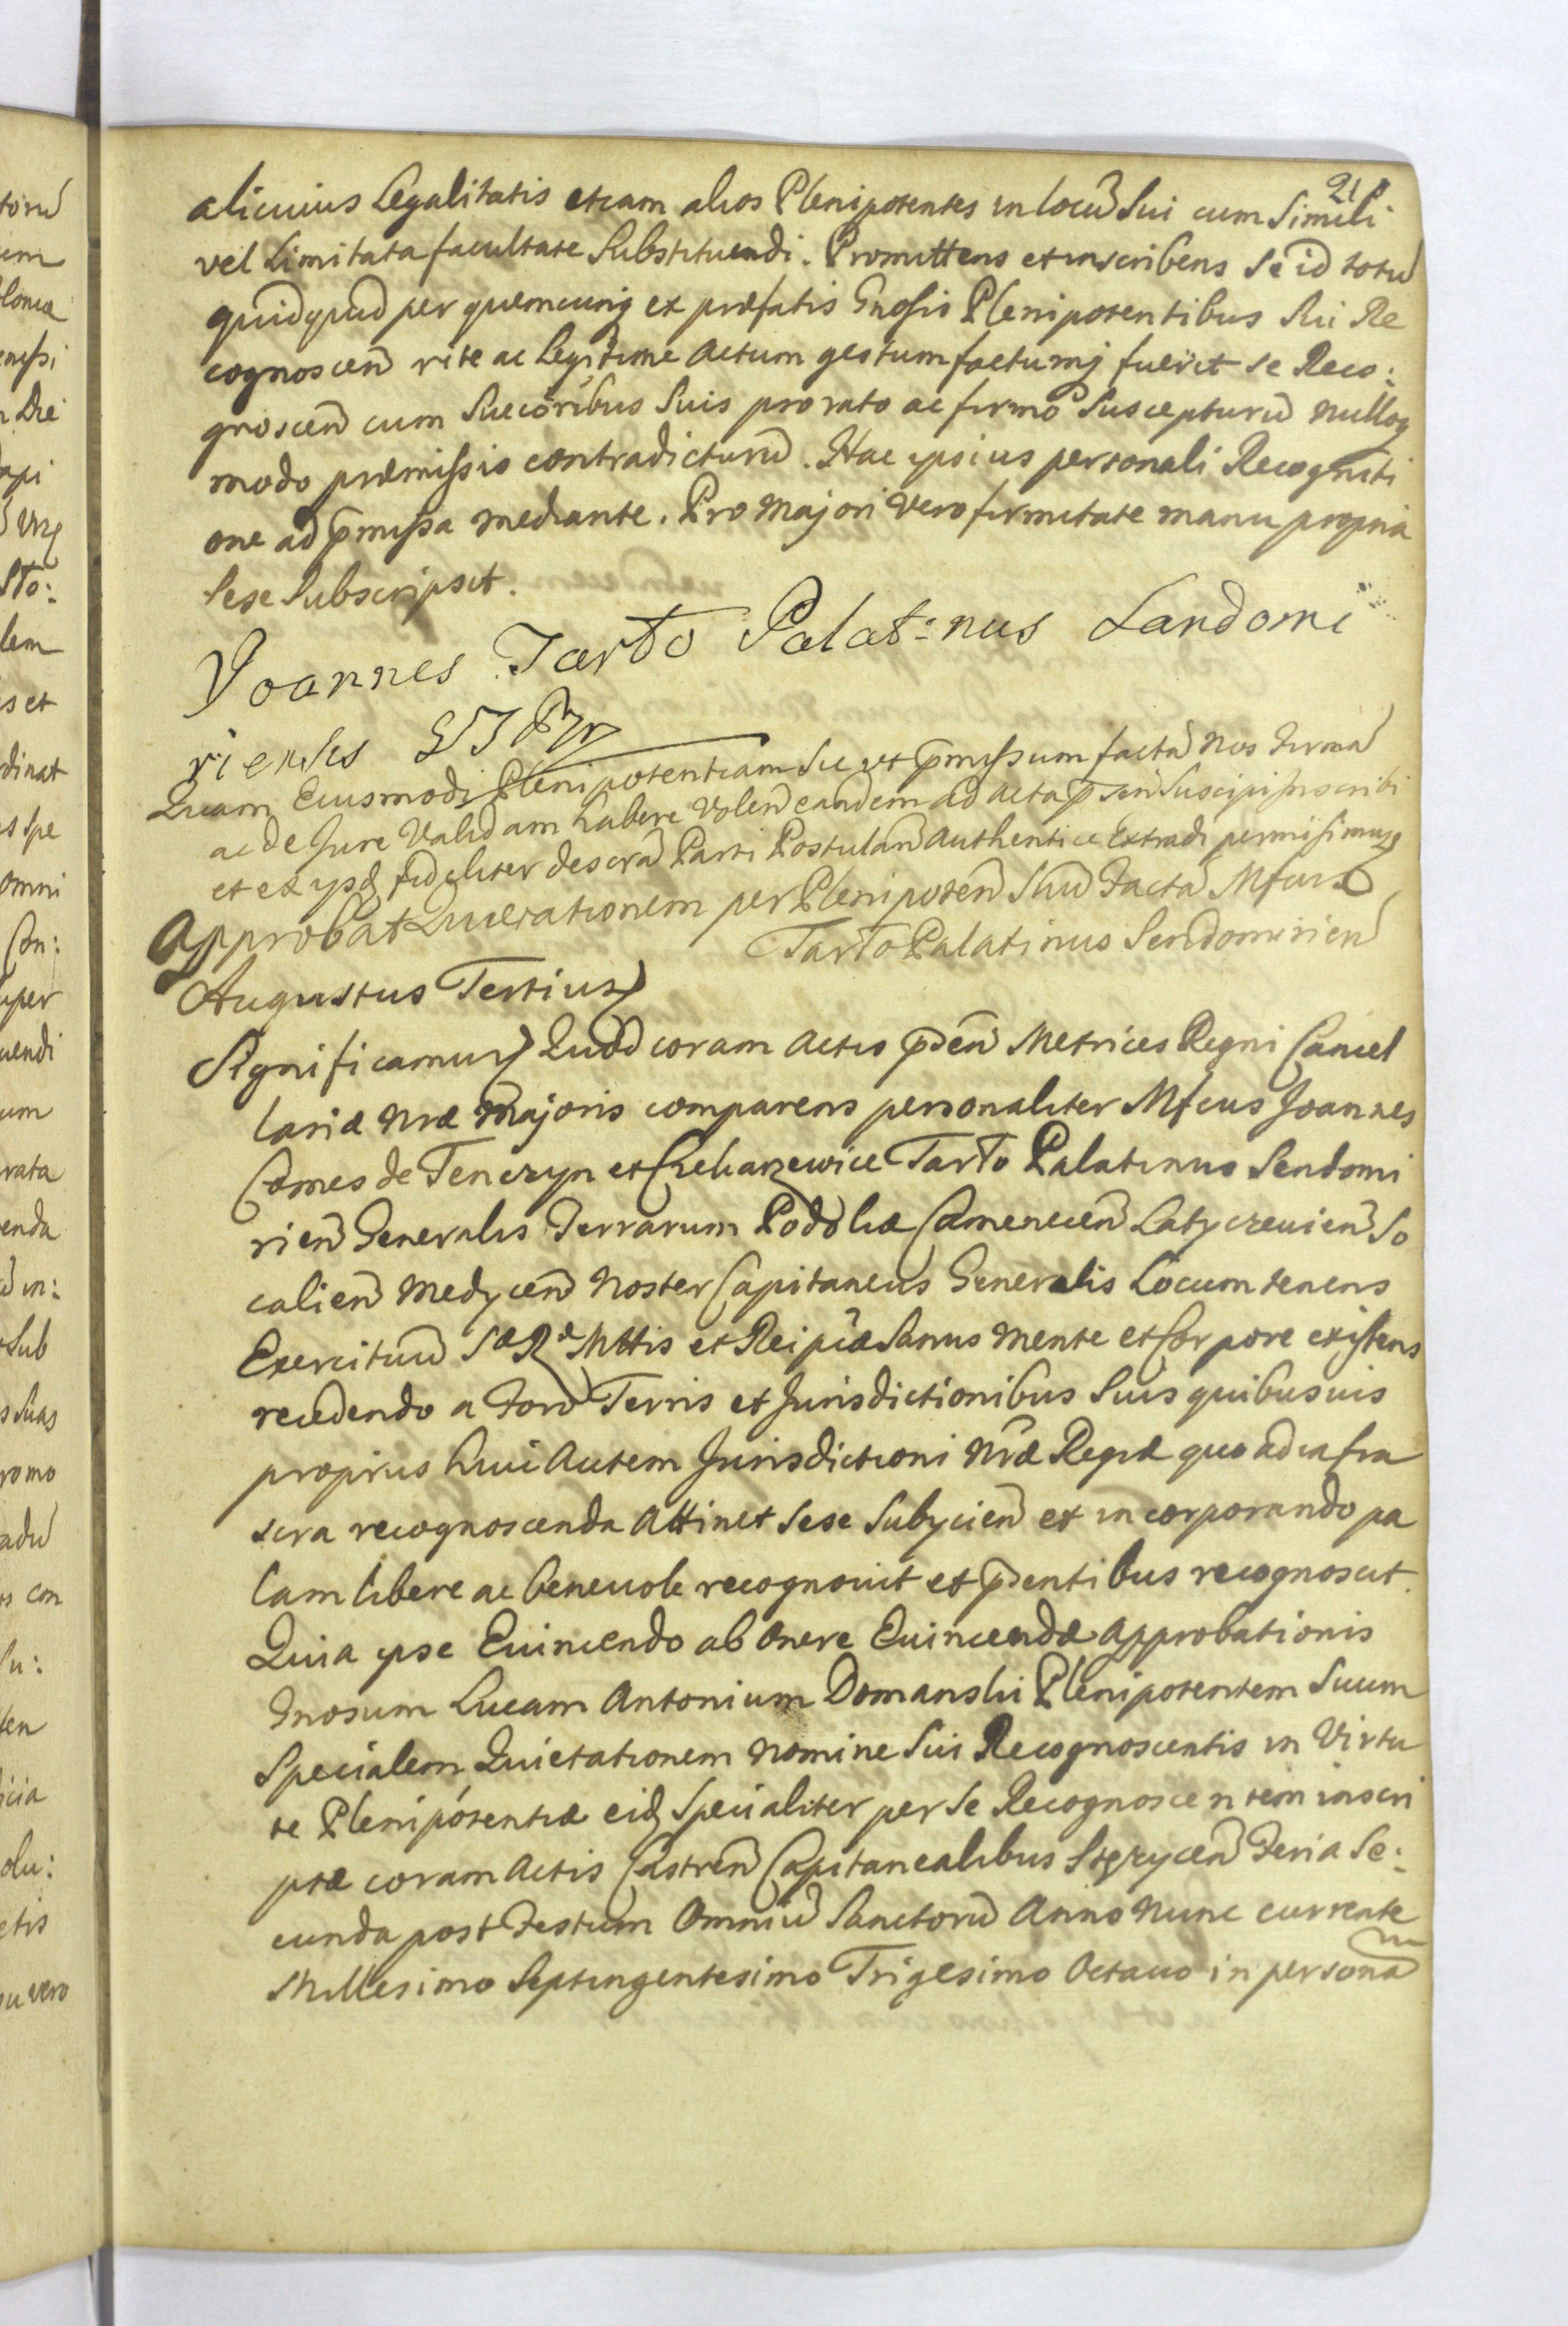 21
alicuius Legalitatis etiam alios Plenipotentes in locū Sui cum Simili
vel Limitata facultate Substituendi. Promittens et inscribens Se id totū
quidquid per quemcunq ex præfatis Gnosis Plenipotentibus Sui Re
cognoscen̄ rite ac Legitime Actum gestum factumq fuerit Se Reco:
gnoscen̄ cum Succoribus Suis pro rato ac firmo Suscepturū nulloq
modo præmissis contradicturū. Hac ipsius personali Recogniti
one ad p̄missa mediante. Pro Majori Vero firmitate manu propria
Sese Subscripsit.
Joannes Tarło Palat:nus Sandomi
rienses
Quam Eiusmodi Plenipotentiam Sic ut p̄missum factā Nos Firmā
ac de Jure Validam habere Volen̄ eandem ad Acta p̄sen̄ Suscipi Inscribi
et ex ysdq fideliter descrā Parti Postulan̄ Authentice Extradi permisimus
Approbat Quietationem per Plenipoten̄ Suū Factā Mfcus
Tarło Palatinus Sendomirien̄
Augustus Tertius
Significamus Quod coram Actis p̄sen̄ Metrices Regni Cancel
lariæ Nræ Majoris comparens personaliter Mfcus Joannes
Comes de Tenczyn et Czekarzewice Tarło Palatinus Sendomi
rien̄ Generalis Terrarum Podoliæ Camenecen̄ Latyczevien̄ So
calien̄ Medycen̄ Noster Capitaneus Generalis Locumtenens
Exercituū SæRæ Mttis et Reipcæ Sanus Mente et Corpore existens
recedendo a Foro Terris et Jurisdictionibus Suis quibusuis
proprius huic Autem Jurisdictioni Nræ Regiæ quo ad infra
scra recognoscenda Attinet Sese Subycien̄ et incorporando pa
lam libere ac beneuole recognouit et p̄sentibus recognoscit
Quia ipse Euincendo ab Onere Euincendæ Approbationis
Gnosum Lucam Antonium Domanski Plenipotentem Suum
Specialem Quietationem Nomine Sui Recognoscentis in Virtu
te Plenipotentiæ eidq Specialiter per Se Recognoscentem inscri
ptæ coram Actis Castren̄ Capitanealibus Stęzycen̄ Feria Se:
cunda post Festum Omniū Sanctorū Anno Nunc currente
Millesimo Septingentesimo Trigesimo Octauo in personā